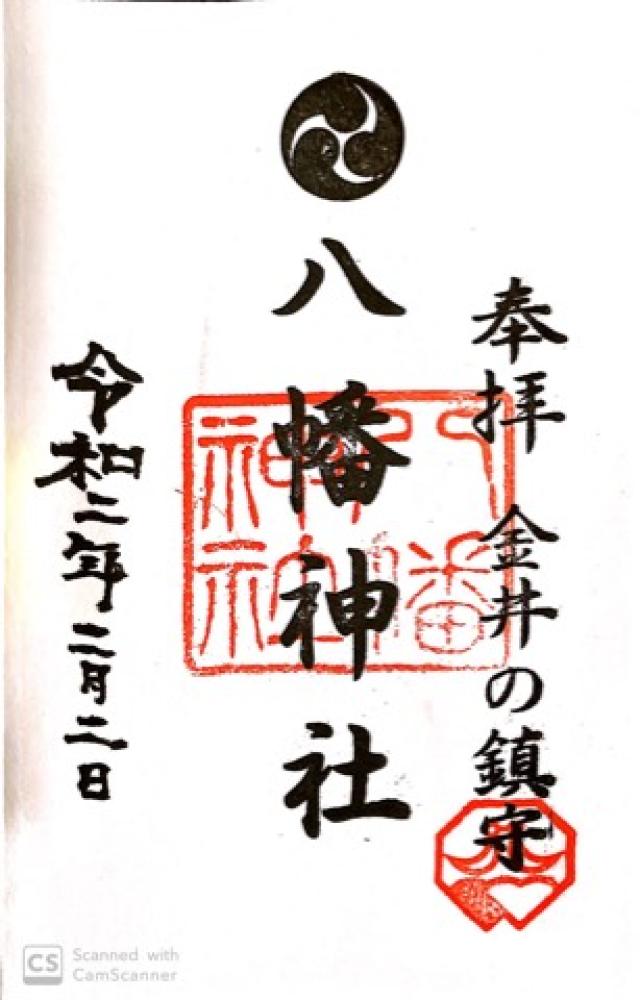 奉拝 金井の鎮守
八幡神社
令和二年二月二日
八幡神社
CS Scanned with
CamScanner